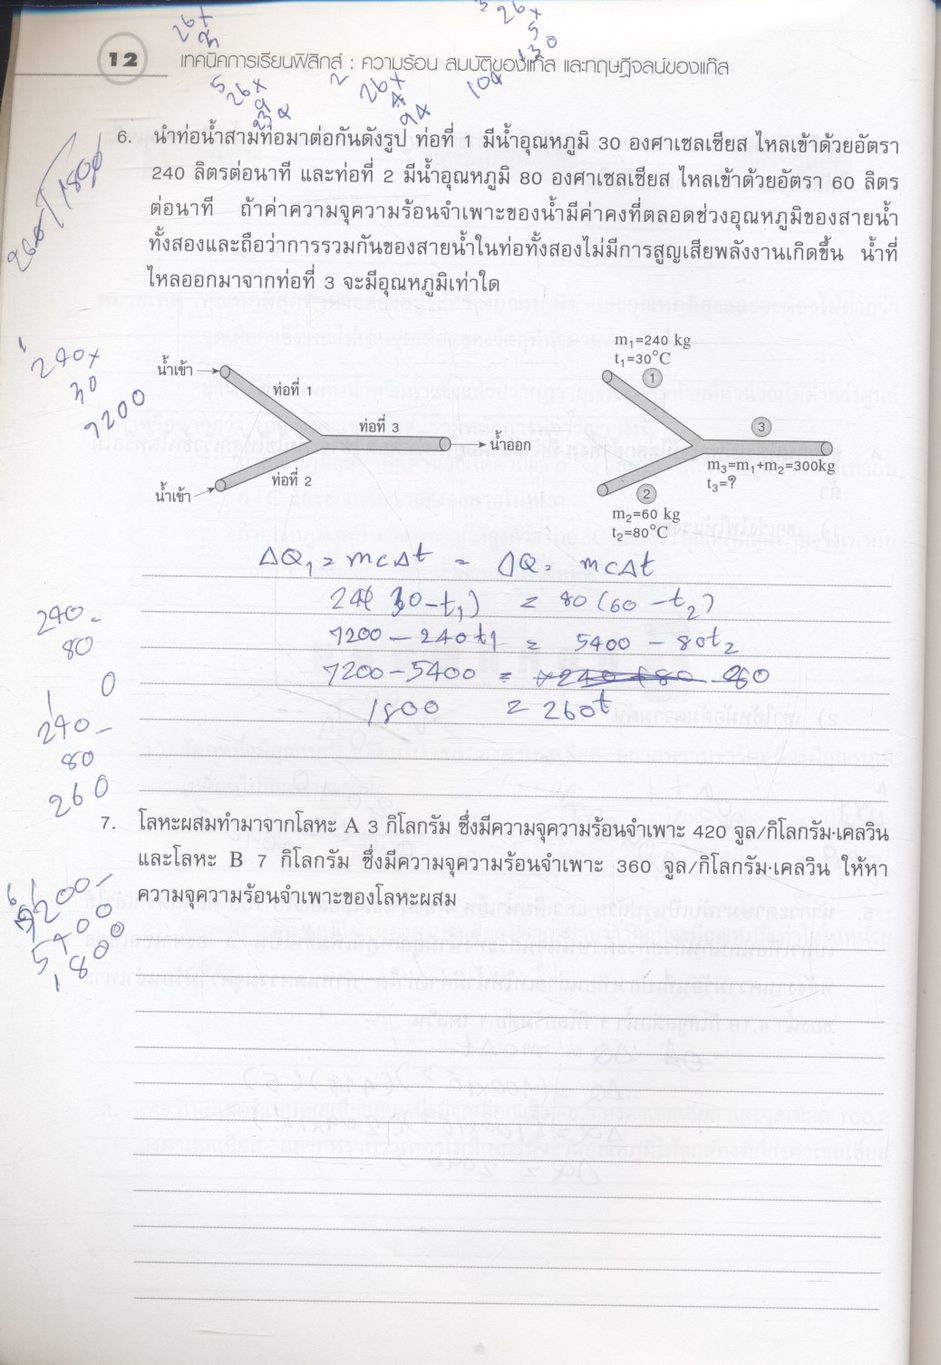 26x
26x
5
130
12
เทคนิคการเรียนฟิสิกส์ : ความร้อน สมบัติของแก๊ส และทฤษฎีจลน์ของแก๊ส
26x
26x
4
104
6. นำท่อน้ำสามท่อมาต่อกันดังรูป ท่อที่ 1 มีน้ำอุณหภูมิ 30 องศาเซลเซียส ไหลเข้าด้วยอัตรา
240 ลิตรต่อนาที และท่อที่ 2 มีน้ำอุณหภูมิ 80 องศาเซลเซียส ไหลเข้าด้วยอัตรา 60 ลิตร
ต่อนาที ถ้าค่าความจุความร้อนจำเพาะของน้ำมีค่าคงที่ตลอดช่วงอุณหภูมิของสายน้ำ
ทั้งสองและถือว่าการรวมกันของสายน้ำในท่อทั้งสองไม่มีการสูญเสียพลังงานเกิดขึ้น น้ำที่
ไหลออกมาจากท่อที่ 3 จะมีอุณหภูมิเท่าใด
260 1800
240x
30
7200
น้ำเข้า
ท่อที่ 1
ท่อที่ 3
น้ำออก
น้ำเข้า
ท่อที่ 2
m₁=240 kg
t₁=30°C
1
3
m₃=m₁+m₂=300kg
t₃=?
2
m₂=60 kg
t₂=80°C
ΔQ₁ = mcΔt = ΔQ = mcΔt
24(30-t₁) = 80(60-t₂)
7200-240t₁ = 5400-80t₂
7200-5400 =
1800 = 260t
240-
80
0
240-
80
260
7200-
5400
1800
7. โลหะผสมทำมาจากโลหะ A 3 กิโลกรัม ซึ่งมีความจุความร้อนจำเพาะ 420 จูล/กิโลกรัม·เคลวิน
และโลหะ B 7 กิโลกรัม ซึ่งมีความจุความร้อนจำเพาะ 360 จูล/กิโลกรัม·เคลวิน ให้หา
ความจุความร้อนจำเพาะของโลหะผสม